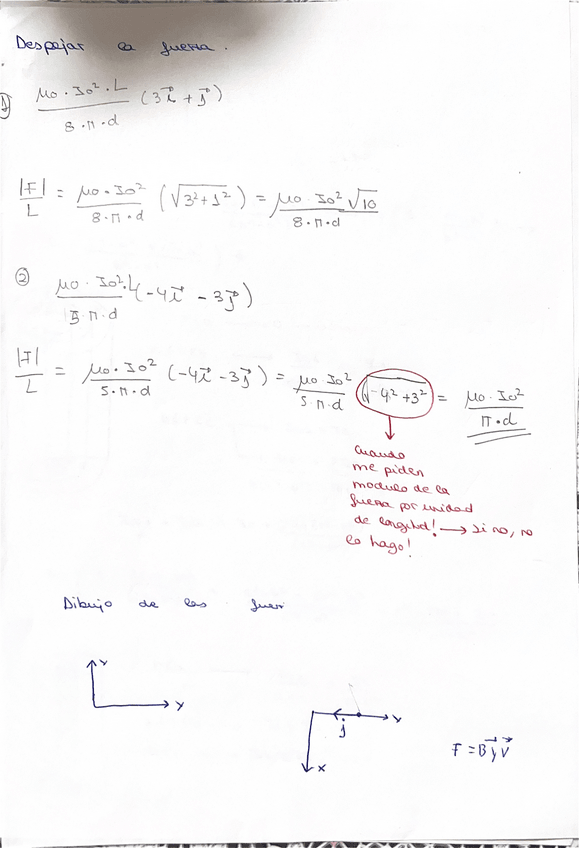 Despejar la fuerza.
① μo·Io²·L / 8·π·d (3i⃗ + j⃗)
|F|/L = μo·Io² / 8·π·d (√3²+1²) = μo·Io²√10 / 8·π·d
② μo·Io²·L / 5·π·d (-4i⃗ - 3j⃗)
|F|/L = μo·Io² / 5·π·d (-4i⃗ - 3j⃗) = μo·Io² / 5·π·d √-4²+3² = μo·Io² / π·d
Cuando
me piden
modulo de la
fuerza por unidad
de longitud! → si no, no
lo hago!
Dibujo de las fuer
Y
Y
Y
j
X
F = B y V⃗